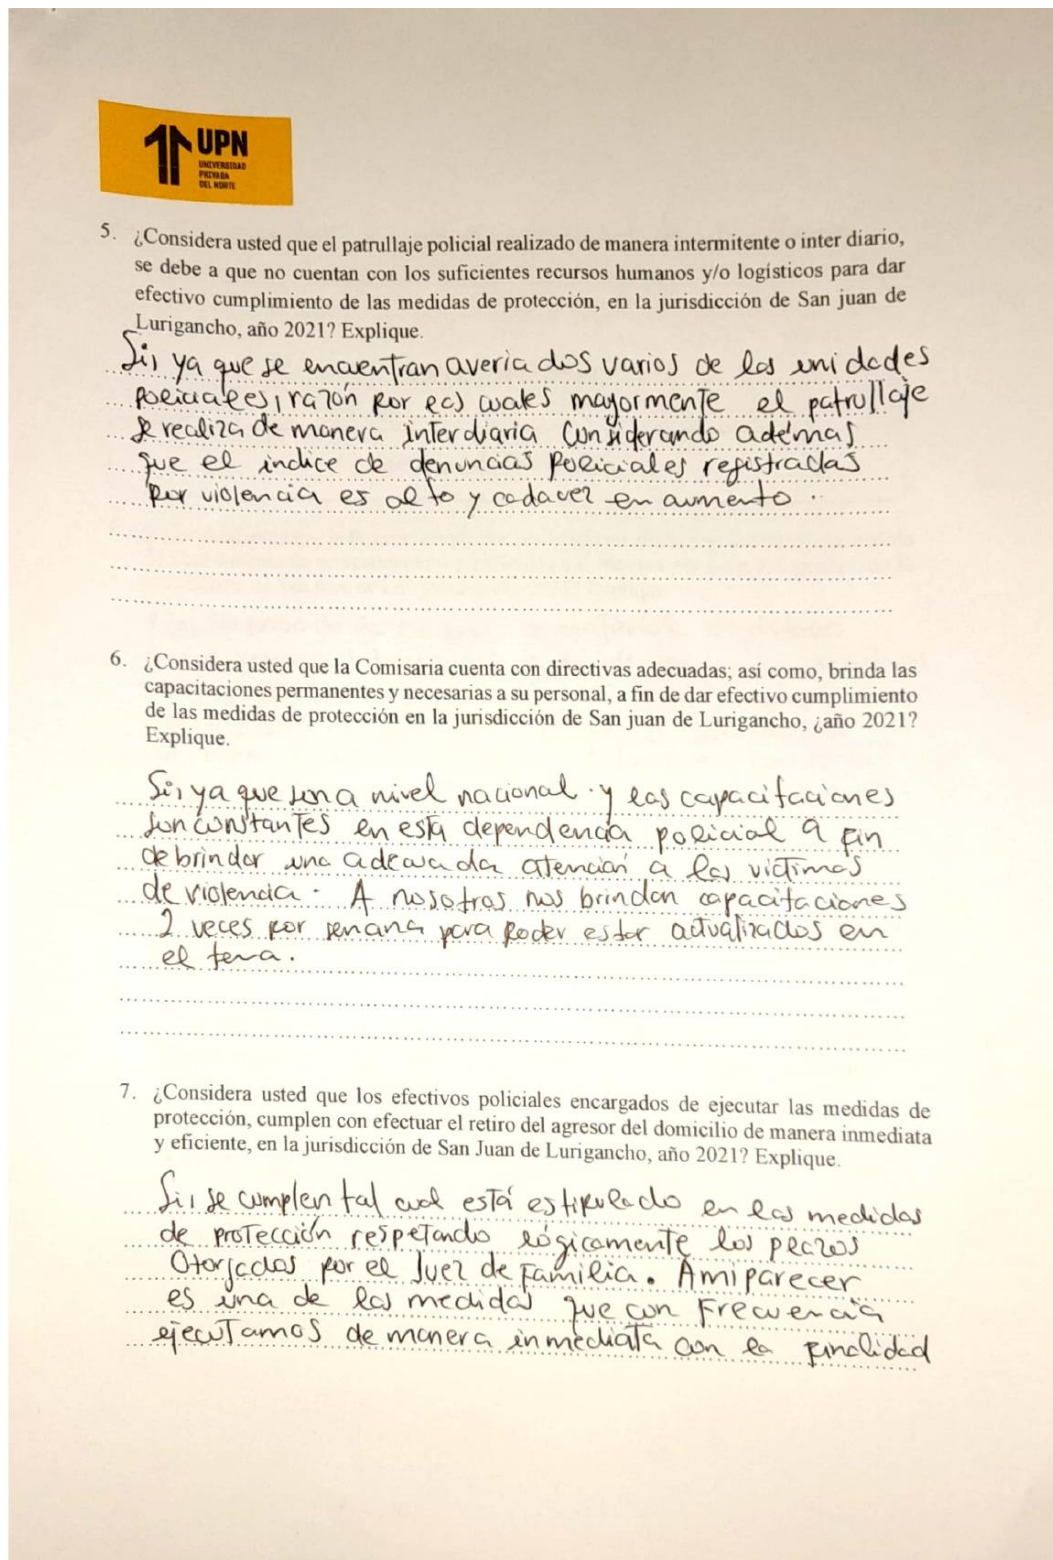 UPN
UNIVERSIDAD
PRIVADA
DEL NORTE
5. ¿Considera usted que el patrullaje policial realizado de manera intermitente o inter diario,
se debe a que no cuentan con los suficientes recursos humanos y/o logísticos para dar
efectivo cumplimiento de las medidas de protección, en la jurisdicción de San juan de
Lurigancho, año 2021? Explique.
Si, ya que se encuentran averiados varios de las unidades
policiales, razón por las cuales mayormente el patrullaje
se realiza de manera interdiaria considerando además
que el índice de denuncias policiales registradas
por violencia es alto y cada vez en aumento.
6. ¿Considera usted que la Comisaria cuenta con directivas adecuadas; así como, brinda las
capacitaciones permanentes y necesarias a su personal, a fin de dar efectivo cumplimiento
de las medidas de protección en la jurisdicción de San juan de Lurigancho, ¿año 2021?
Explique.
Si, ya que son a nivel nacional y las capacitaciones
son constantes en esta dependencia policial a fin
de brindar una adecuada atención a las víctimas
de violencia. A nosotros nos brindan capacitaciones
2 veces por semana para poder estar actualizados en
el tema.
7. ¿Considera usted que los efectivos policiales encargados de ejecutar las medidas de
protección, cumplen con efectuar el retiro del agresor del domicilio de manera inmediata
y eficiente, en la jurisdicción de San Juan de Lurigancho, año 2021? Explique.
Si, se cumplen tal cual está estipulado en las medidas
de protección respetando lógicamente los plazos
otorgados por el Juez de Familia. A mi parecer
es una de las medidas que con frecuencia
ejecutamos de manera inmediata con la finalidad